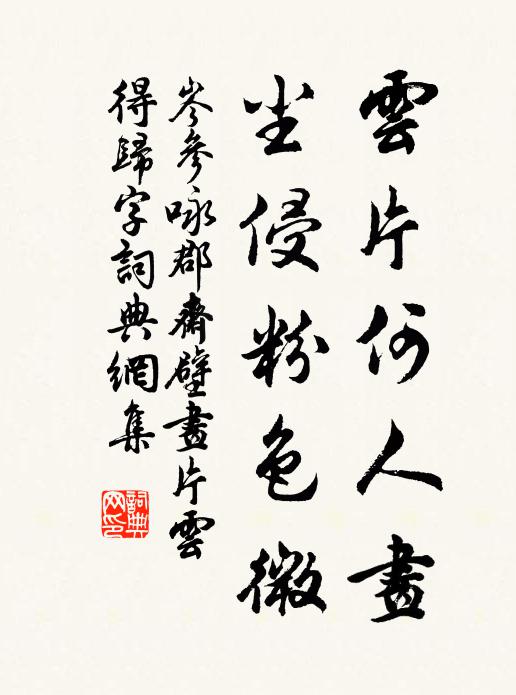 雲片何人畫
尘侵粉色微
岑參咏郡齋壁畫片雲
得歸字詞典網集
詞典网印